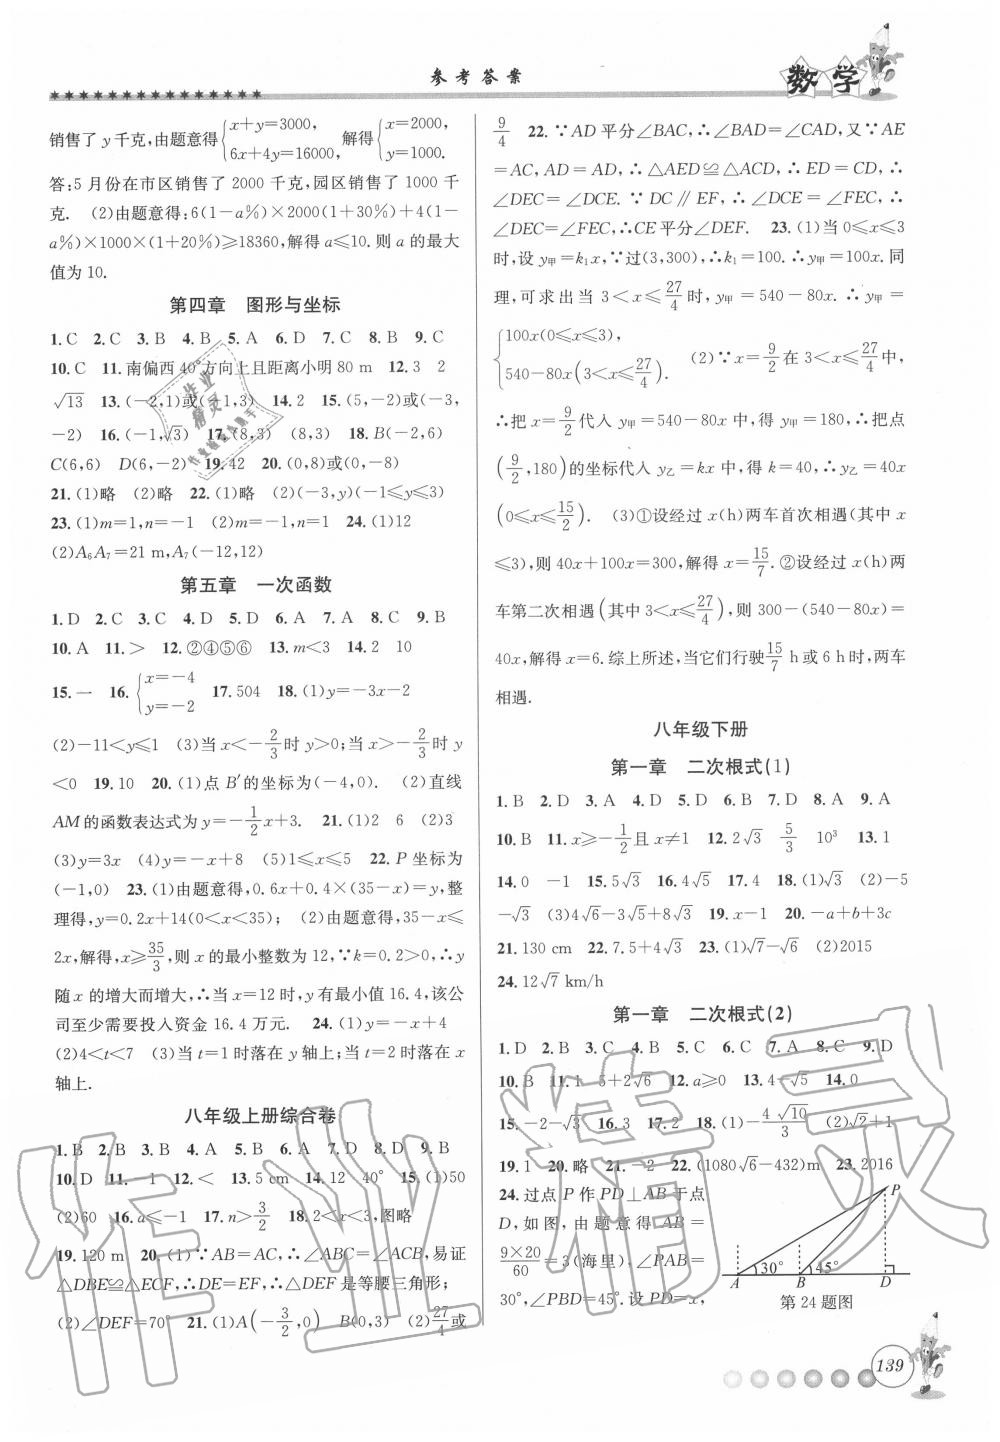 参考答案
数学
销售了 y 千克,由题意得{x+y=3000, 6x+4y=16000, 解得{x=2000, y=1000.
答:5 月份在市区销售了 2000 千克,园区销售了 1000 千
克. (2)由题意得:6(1-a%)×2000(1+30%)+4(1-
a%)×1000×(1+20%)≥18360,解得 a≤10.则 a 的最大
值为 10.
第四章 图形与坐标
1.C 2.C 3.B 4.B 5.A 6.D 7.C 8.B 9.C
10.C 11.南偏西 40°方向上且距离小明 80 m 12.3 2
√13 13.(-2,1)或(-1,3) 14.2 15.(5,-2)或(-3,
-2) 16.(-1,√3) 17.(8,3) (8,3) 18.B(-2,6)
C(6,6) D(6,-2) 19.42 20.(0,8)或(0,-8)
21.(1)略 (2)略 22.(1)略 (2)(-3,y)(-1≤y≤3)
23.(1)m=1,n=-1 (2)m=-1,n=1 24.(1)12
(2)A₆A₇=21 m,A₇(-12,12)
第五章 一次函数
1.D 2.C 3.C 4.D 5.D 6.A 7.A 8.C 9.B
10.A 11.> 12.②④⑤⑥ 13.m<3 14.2 10
15.一 16.{x=-4 y=-2 17.504 18.(1)y=-3x-2
(2)-11<y≤1 (3)当 x<-2/3时 y>0;当 x>-2/3时 y
<0 19.10 20.(1)点 B′的坐标为(-4,0). (2)直线
AM 的函数表达式为 y=-1/2x+3. 21.(1)2 6 (2)3
(3)y=3x (4)y=-x+8 (5)1≤x≤5 22.P 坐标为
(-1,0) 23.(1)由题意得,0.6x+0.4×(35-x)=y,整
理得,y=0.2x+14(0<x<35); (2)由题意得,35-x≤
2x,解得:x≥35/3,则 x 的最小整数为 12,∵k=0.2>0,∴y
随 x 的增大而增大,∴当 x=12 时,y 有最小值 16.4,该公
司至少需要投入资金 16.4 万元. 24.(1)y=-x+4
(2)4<t<7 (3)当 t=1 时落在 y 轴上;当 t=2 时落在 x
轴上.
八年级上册综合卷
1.B 2.B 3.B 4.A 5.B 6.A 7.D 8.D 9.B
10.D 11.-1 12.< 13.5 cm 14.12 40° 15.(1)50
(2)60 16.a≤-1 17.n>3/2 18.2<x<3,图略
19.120 m 20.(1)∵AB=AC,∴∠ABC=∠ACB,易证
△DBE≌△ECF,∴DE=EF,∴△DEF 是等腰三角形;
(2)∠DEF=70° 21.(1)A(-3/2,0) B(0,3) (2)27/4或
9/4 22.∵AD 平分∠BAC,∴∠BAD=∠CAD,又∵AE
=AC,AD=AD,∴△AED≌△ACD,∴ED=CD,∴
∠DEC=∠DCE.∵DC∥EF,∴∠DCE=∠FEC,∴
∠DEC=∠FEC,∴CE 平分∠DEF. 23.(1)当 0≤x≤3
时,设 y甲=k₁x,∵过(3,300),∴k₁=100.∴y甲=100x.同
理,可求出当 3<x≤27/4时,y甲=540-80x.∴y甲=
{100x(0≤x≤3), 540-80x(3<x≤27/4). (2)∵x=9/2在 3<x≤27/4中,
∴把 x=9/2代入 y甲=540-80x 中,得 y甲=180,∴把点
(9/2,180)的坐标代入 y乙=kx 中,得 k=40,∴y乙=40x
(0≤x≤15/2). (3)①设经过 x(h)两车首次相遇(其中 x
≤3),则 40x+100x=300,解得 x=15/7.②设经过 x(h)两
车第二次相遇(其中 3<x≤27/4),则 300-(540-80x)=
40x,解得 x=6.综上所述,当它们行驶15/7 h 或 6 h 时,两车
相遇.
八年级下册
第一章 二次根式(1)
1.B 2.D 3.A 4.D 5.D 6.B 7.D 8.A 9.A
10.B 11.x≥-1/2且 x≠1 12.2√3 5/3 10³ 13.1
14.0 -1 15.5√3 16.4√5 17.4 18.(1)√3 (2)-5
-√3 (3)4√6-3√5+8√3 19.x-1 20.-a+b+3c
21.130 cm 22.7.5+4√3 23.(1)√7-√6 (2)2015
24.12√7 km/h
第一章 二次根式(2)
1.D 2.B 3.C 4.B 5.C 6.C 7.A 8.C 9.D
10.B 11.1 5+2√6 12.a≥0 13.4-√5 14.0
15.-2-√3 16.3 17.2 18.(1)-4√10/3 (2)√2+1
19.1 20.略 21.-2 22.(1080√6-432)m 23.2016
24.过点 P 作 PD⊥AB 于点
D,如图,由题意得 AB=
9×20/60=3(海里),∠PAB=
30°,∠PBD=45°.设 PD=x,
P
30° 45°
A B D
第 24 题图
139
作业精灵
作业精灵